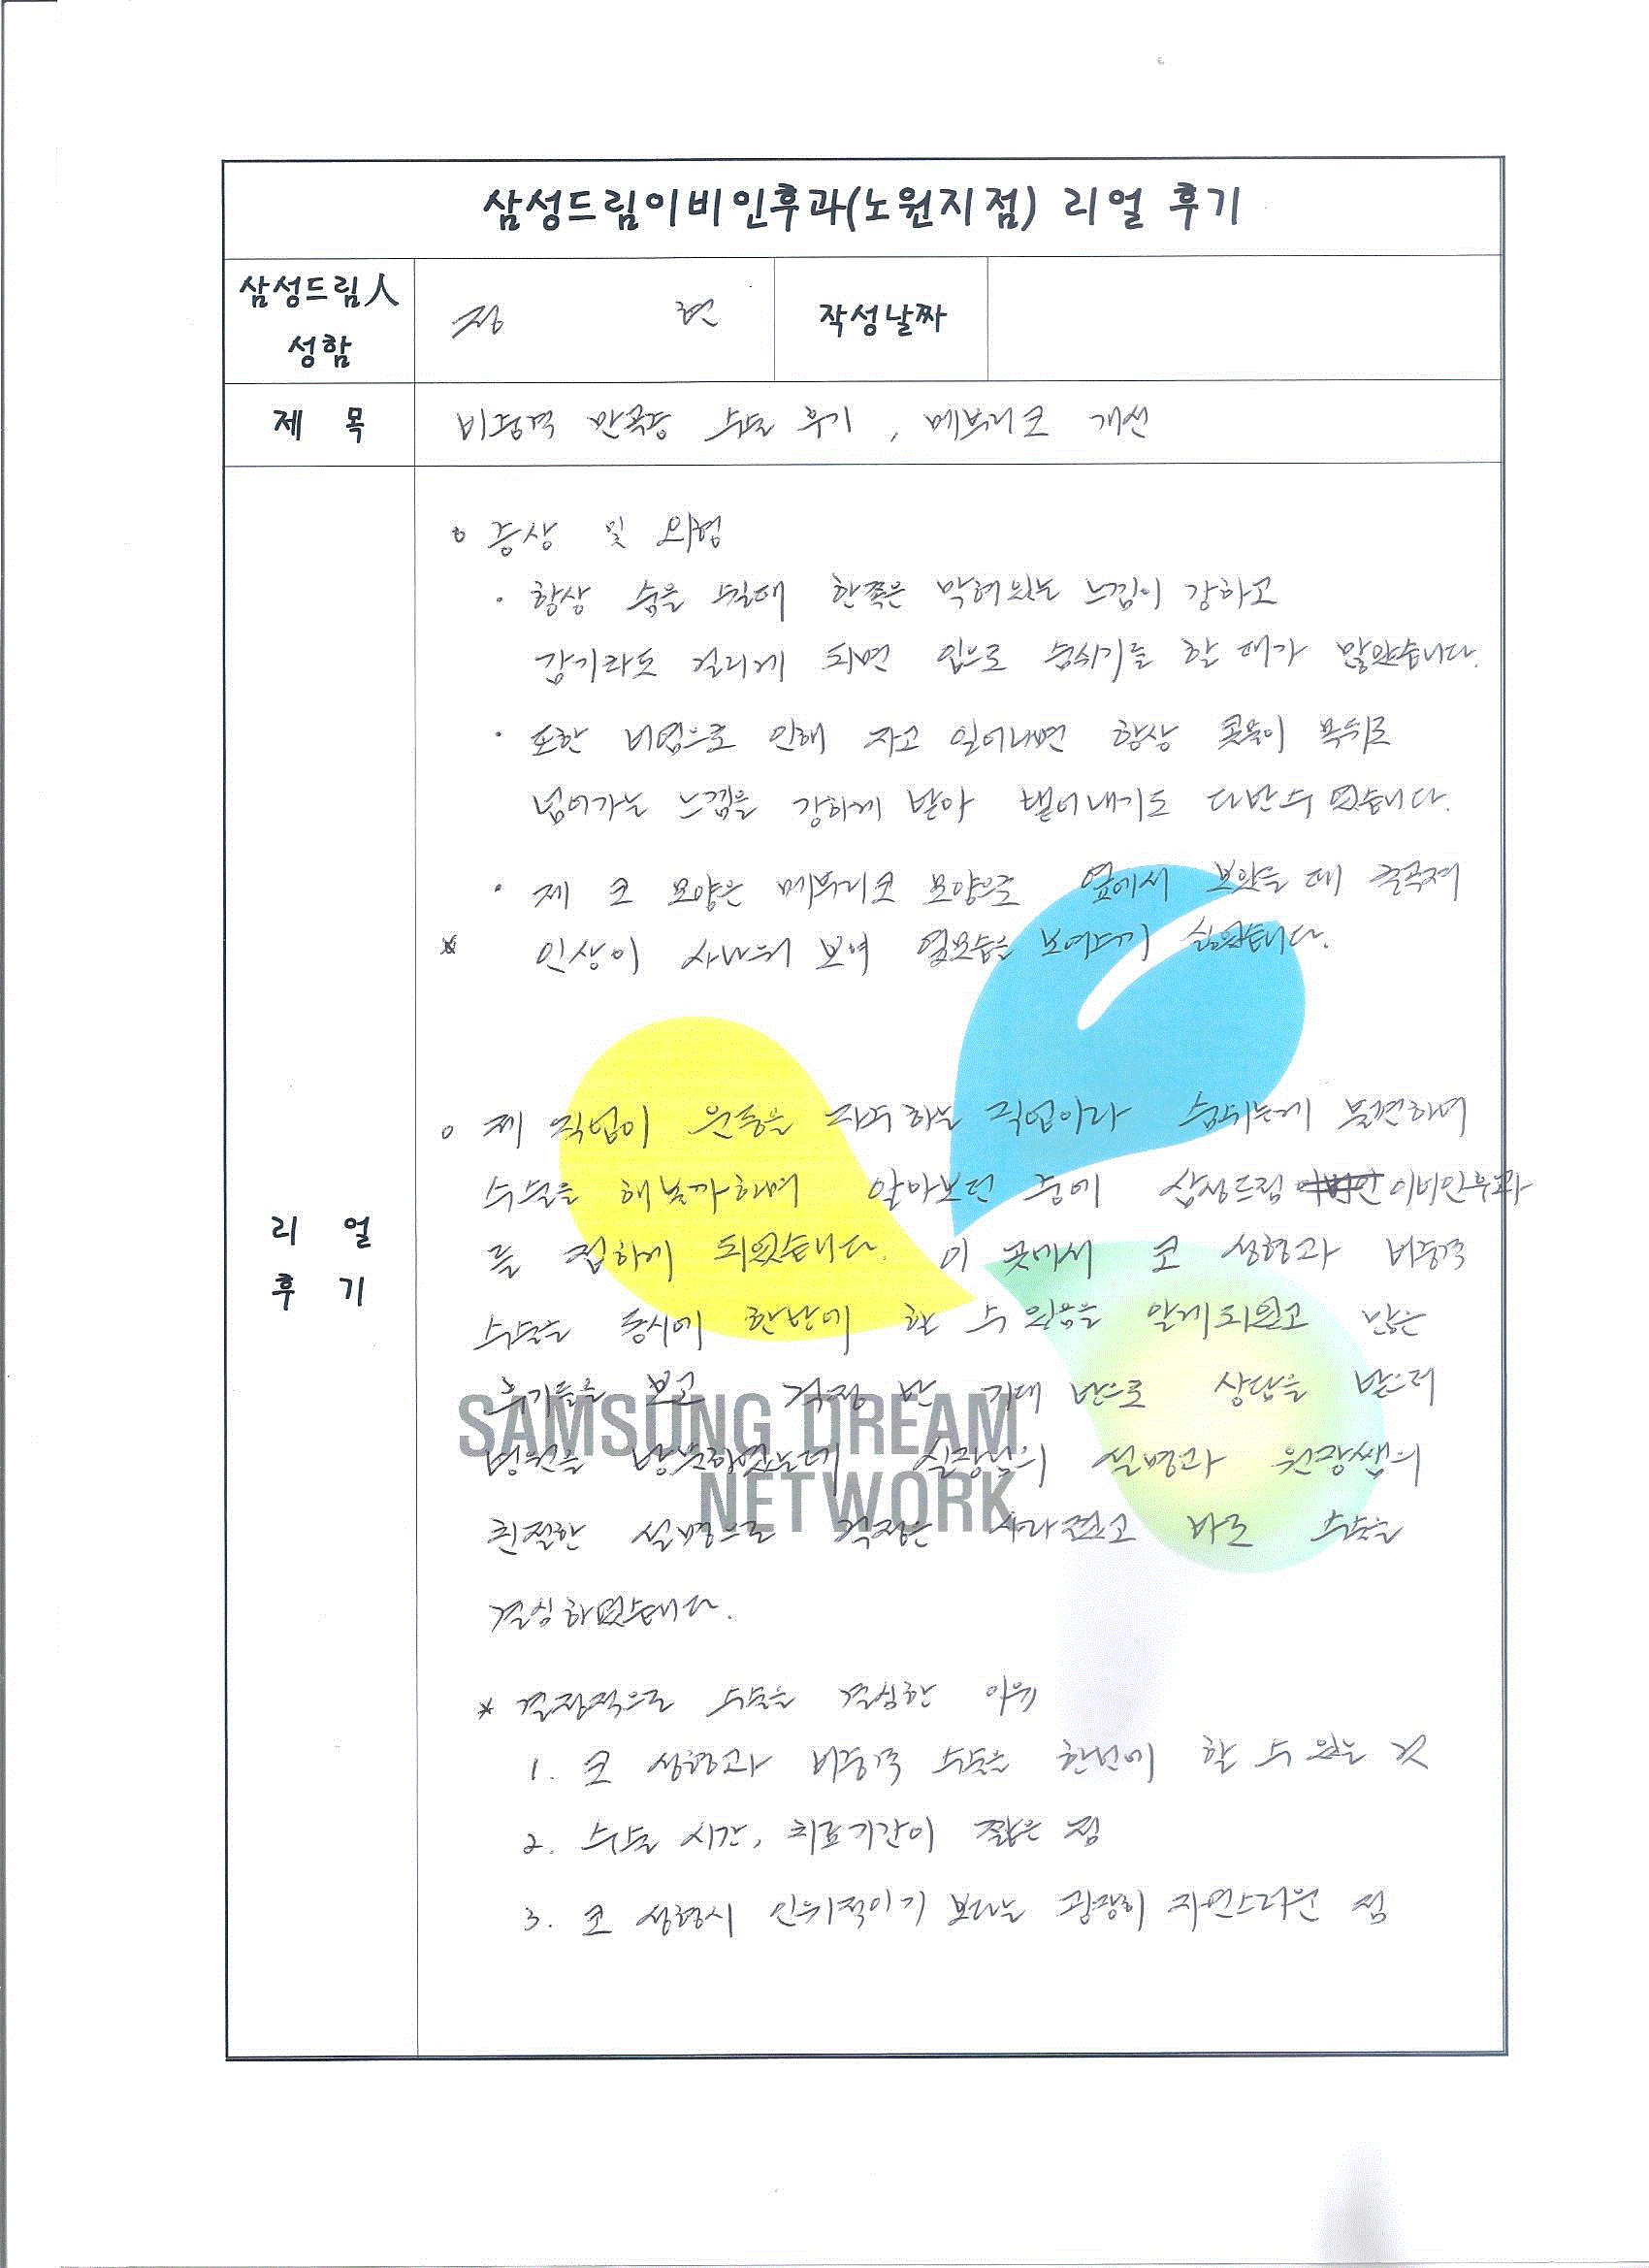 삼성드림이비인후과(노원지점) 리얼 후기
삼성드림人 성함
정 현
작성날짜
제 목
비중격 만곡증 수술 후기, 메부리코 개선
리 얼 후 기
o 증상 및 외형
· 항상 숨을 쉴때 한쪽은 막혀있는 느낌이 강하고
감기라도 걸리게 되면 입으로 숨쉬기를 할 때가 많았습니다.
· 또한 비염으로 인해 자고 일어나면 항상 콧물이 목뒤로
넘어가는 느낌을 강하게 받아 뱉어내기도 다반수 였습니다.
· 제 코 모양은 메부리코 모양으로 옆에서 보았을 때 굴곡져
* 인상이 사나워 보여 옆모습을 보여주기 싫었습니다.
o 제 직업이 운동을 자주 하는 직업이라 숨쉬는게 불편하여
수술을 해볼까하며 알아보던 중에 삼성드림 이비인후과
를 접하게 되었습니다. 이 곳에서 코 성형과 비중격
수술을 동시에 한번에 할 수 있음을 알게되었고 많은
후기들을 보고 걱정 반 기대 반으로 상담을 받으러
병원을 방문하였는데 실장님의 설명과 원장쌤의
친절한 설명으로 걱정은 사라졌고 바로 수술을
결심하였습니다.
* 결정적으로 수술을 결심한 이유
1. 코 성형과 비중격 수술을 한번에 할 수 있는 것
2. 수술 시간, 치료기간이 짧은 점
3. 코 성형시 인위적이기 보다는 굉장히 자연스러운 점
SAMSUNG DREAM
NETWORK